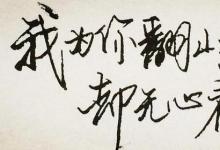 我为你翻山
却无心